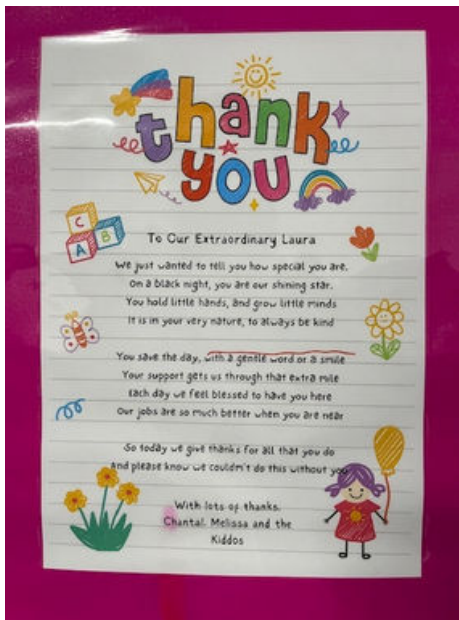 thank
you
C
A B
To Our Extraordinary Laura
We just wanted to tell you how special you are.
On a black night, you are our shining star.
You hold little hands, and grow little minds
It is in your very nature, to always be kind
You save the day, with a gentle word or a smile
Your support gets us through that extra mile
Each day we feel blessed to have you here
Our jobs are so much better when you are near
So today we give thanks for all that you do
And please know we couldn't do this without you
With lots of thanks.
Chantal. Melissa and the
Kiddos